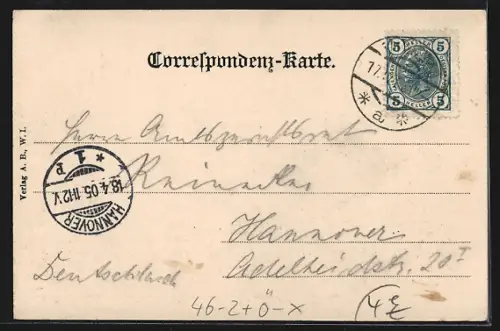 Correspondenz-Karte.
5 5
17.
5 5
* a *
Herrn Amtsgerichtsrat
Reinecke
Verlag A. B., W. I.
* 1 P
18.4.05 11-12 V
HANNOVER
Hannover
Adelheidstr. 20 I
Deutschland
46-2+Ö-X
4E